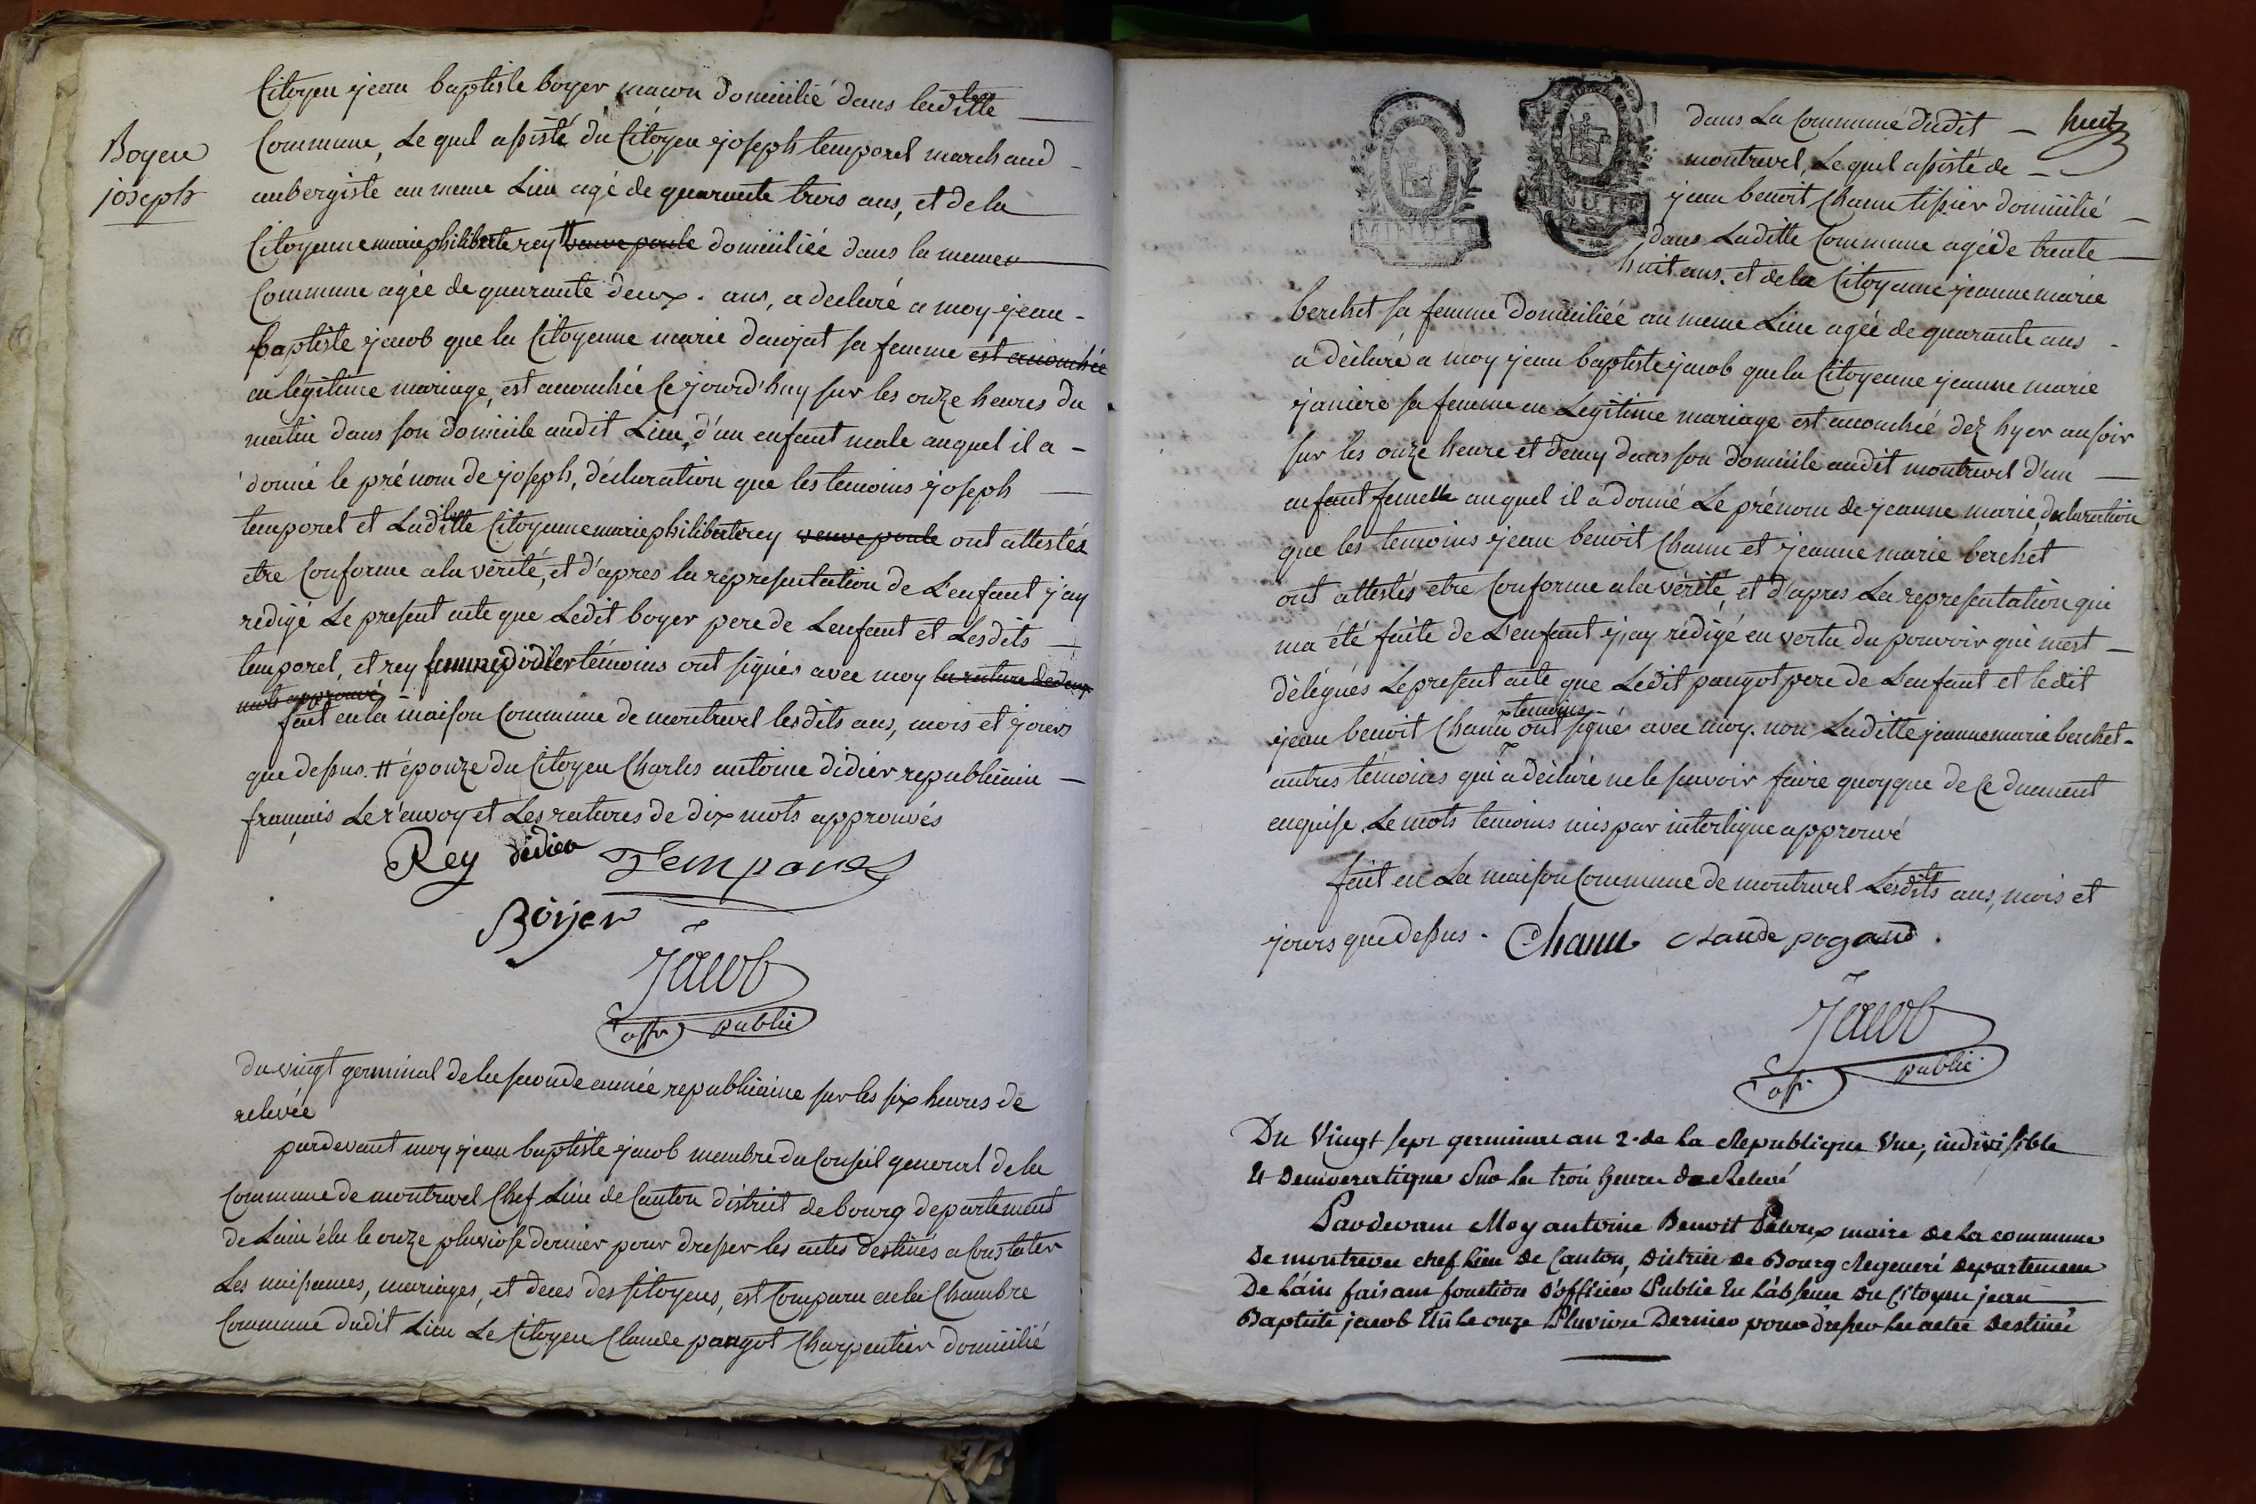 Citoyen jean baptiste boyer macon domicilié dans laditte
Boyer
joseph
Commune, Le quel assisté du Citoyen joseph temporel marchand
aubergiste au meme Lieu agé de quarante trois ans, et de la
Citoyenne marie philiberte rey # veuve poule domiciliée dans la meme
Commune agée de quarante deux ans, a declaré a moy jean
baptiste jacob que la Citoyenne marie danjat sa femme est acouchée
en légitime mariage, est acouchée Ce jourd'huy sur les onze heures du
matin dans son domicile audit Lieu, d'un enfant male auquel il a
donné le prénom de joseph, déclaration que les temoins joseph
temporel et Laditte Citoyenne marie philiberte rey veuve poule ont attestés
etre Conforme a la vérité, et d'apres la representation de L'enfant j'ay
rédigé Le present acte que Ledit boyer pere de Lenfant et Lesdits
temporel, et rey femme didier témoins ont signés avec moy la rature de deux
mots approuvé
fait en la maison Commune de montrevel lesdits ans, mois et jours
que dessus. # épouze du Citoyen Charles antoine didier republicain
français Le r'envoy et Les ratures de dix mots approuvés
Rey didier Temporel
Boyer
Jacob
offr public
du vingt germinal de la seconde année republicaine sur les six heures de
relevée
pardevant moy jean baptiste jacob membre du Conseil general de la
Commune de montrevel Chef Lieu de Canton district de bourg departement
de Lain élu le onze pluviose dernier pour dresser les actes destinés a Constater
Les naissances, mariages, et deces des Citoyens, est Comparu en la Chambre
Commune dudit Lieu Le Citoyen Claude pangot Charpentier domicilié
dans La Commune dudit huit
montrevel, Le quel assisté de
jean benoit Chanu tissier domicilié
dans Laditte Commune agé de trente
huit ans. et de la Citoyenne jeanne marie
berchet sa femme domiciliée au meme Lieu agée de quarante ans
a déclaré a moy jean baptiste jacob que la Citoyenne jeanne marie
janiere sa femme en Legitime mariage est acouchée dez hyer au soir
sur les onze heure et demy dans son domicile audit montrevel d'un
enfant femelle auquel il a donné Le prénom de jeanne marie, declaration
que les temoins jean benoit Chanu et jeanne marie berchet
ont attestés etre Conforme a la vérité, et d'apres La representation qui
ma été faite de L'enfant j'ay rédigé en vertu du pouvoir qui mest
délégués Le present acte que Ledit pangot pere de L'enfant et ledit
temoins
jean benoit Chanu ont signés avec moy. non Laditte jeanne marie berchet
autres témoins qui a déclaré ne le savoir faire quoyque de Ce duement
enquise. Le mots temoins mis par interligne approuvé
fait en La maison Commune de montrevel Lesdits ans, mois et
jours que dessus. Chanu Claude
Jacob
offr public
Du Vingt sept germinal an 2e de la Republique Une, indivisible
Et Democratique Sur les trois heures de Relevé
Pardevant Moy antoine Benoit maire de La commune
De montrevel chef lieu de Canton, District de Bourg Regeneré Departement
De L'ain faisant fonction d'officier Public En L'absence Du Citoyen jean
Baptiste jacob Elû le onze Pluviose Dernier pour dresser les actes Destinés